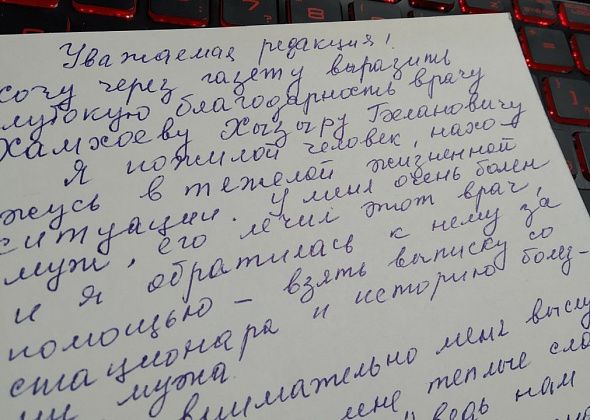 Уважаемая редакция!
хочу через газету выразить
глубокую благодарность врачу
Хамхоеву Хызыру Гелановичу
Я пожилой человек, нахо-
жусь в тяжелой жизненной
ситуации. У меня очень болен
муж, его лечил этот врач,
и я обратилась к нему за
помощью – взять выписку со
стационара и историю болез-
ни мужа.
внимательно меня выслу
мне теплые сло
ведь нам